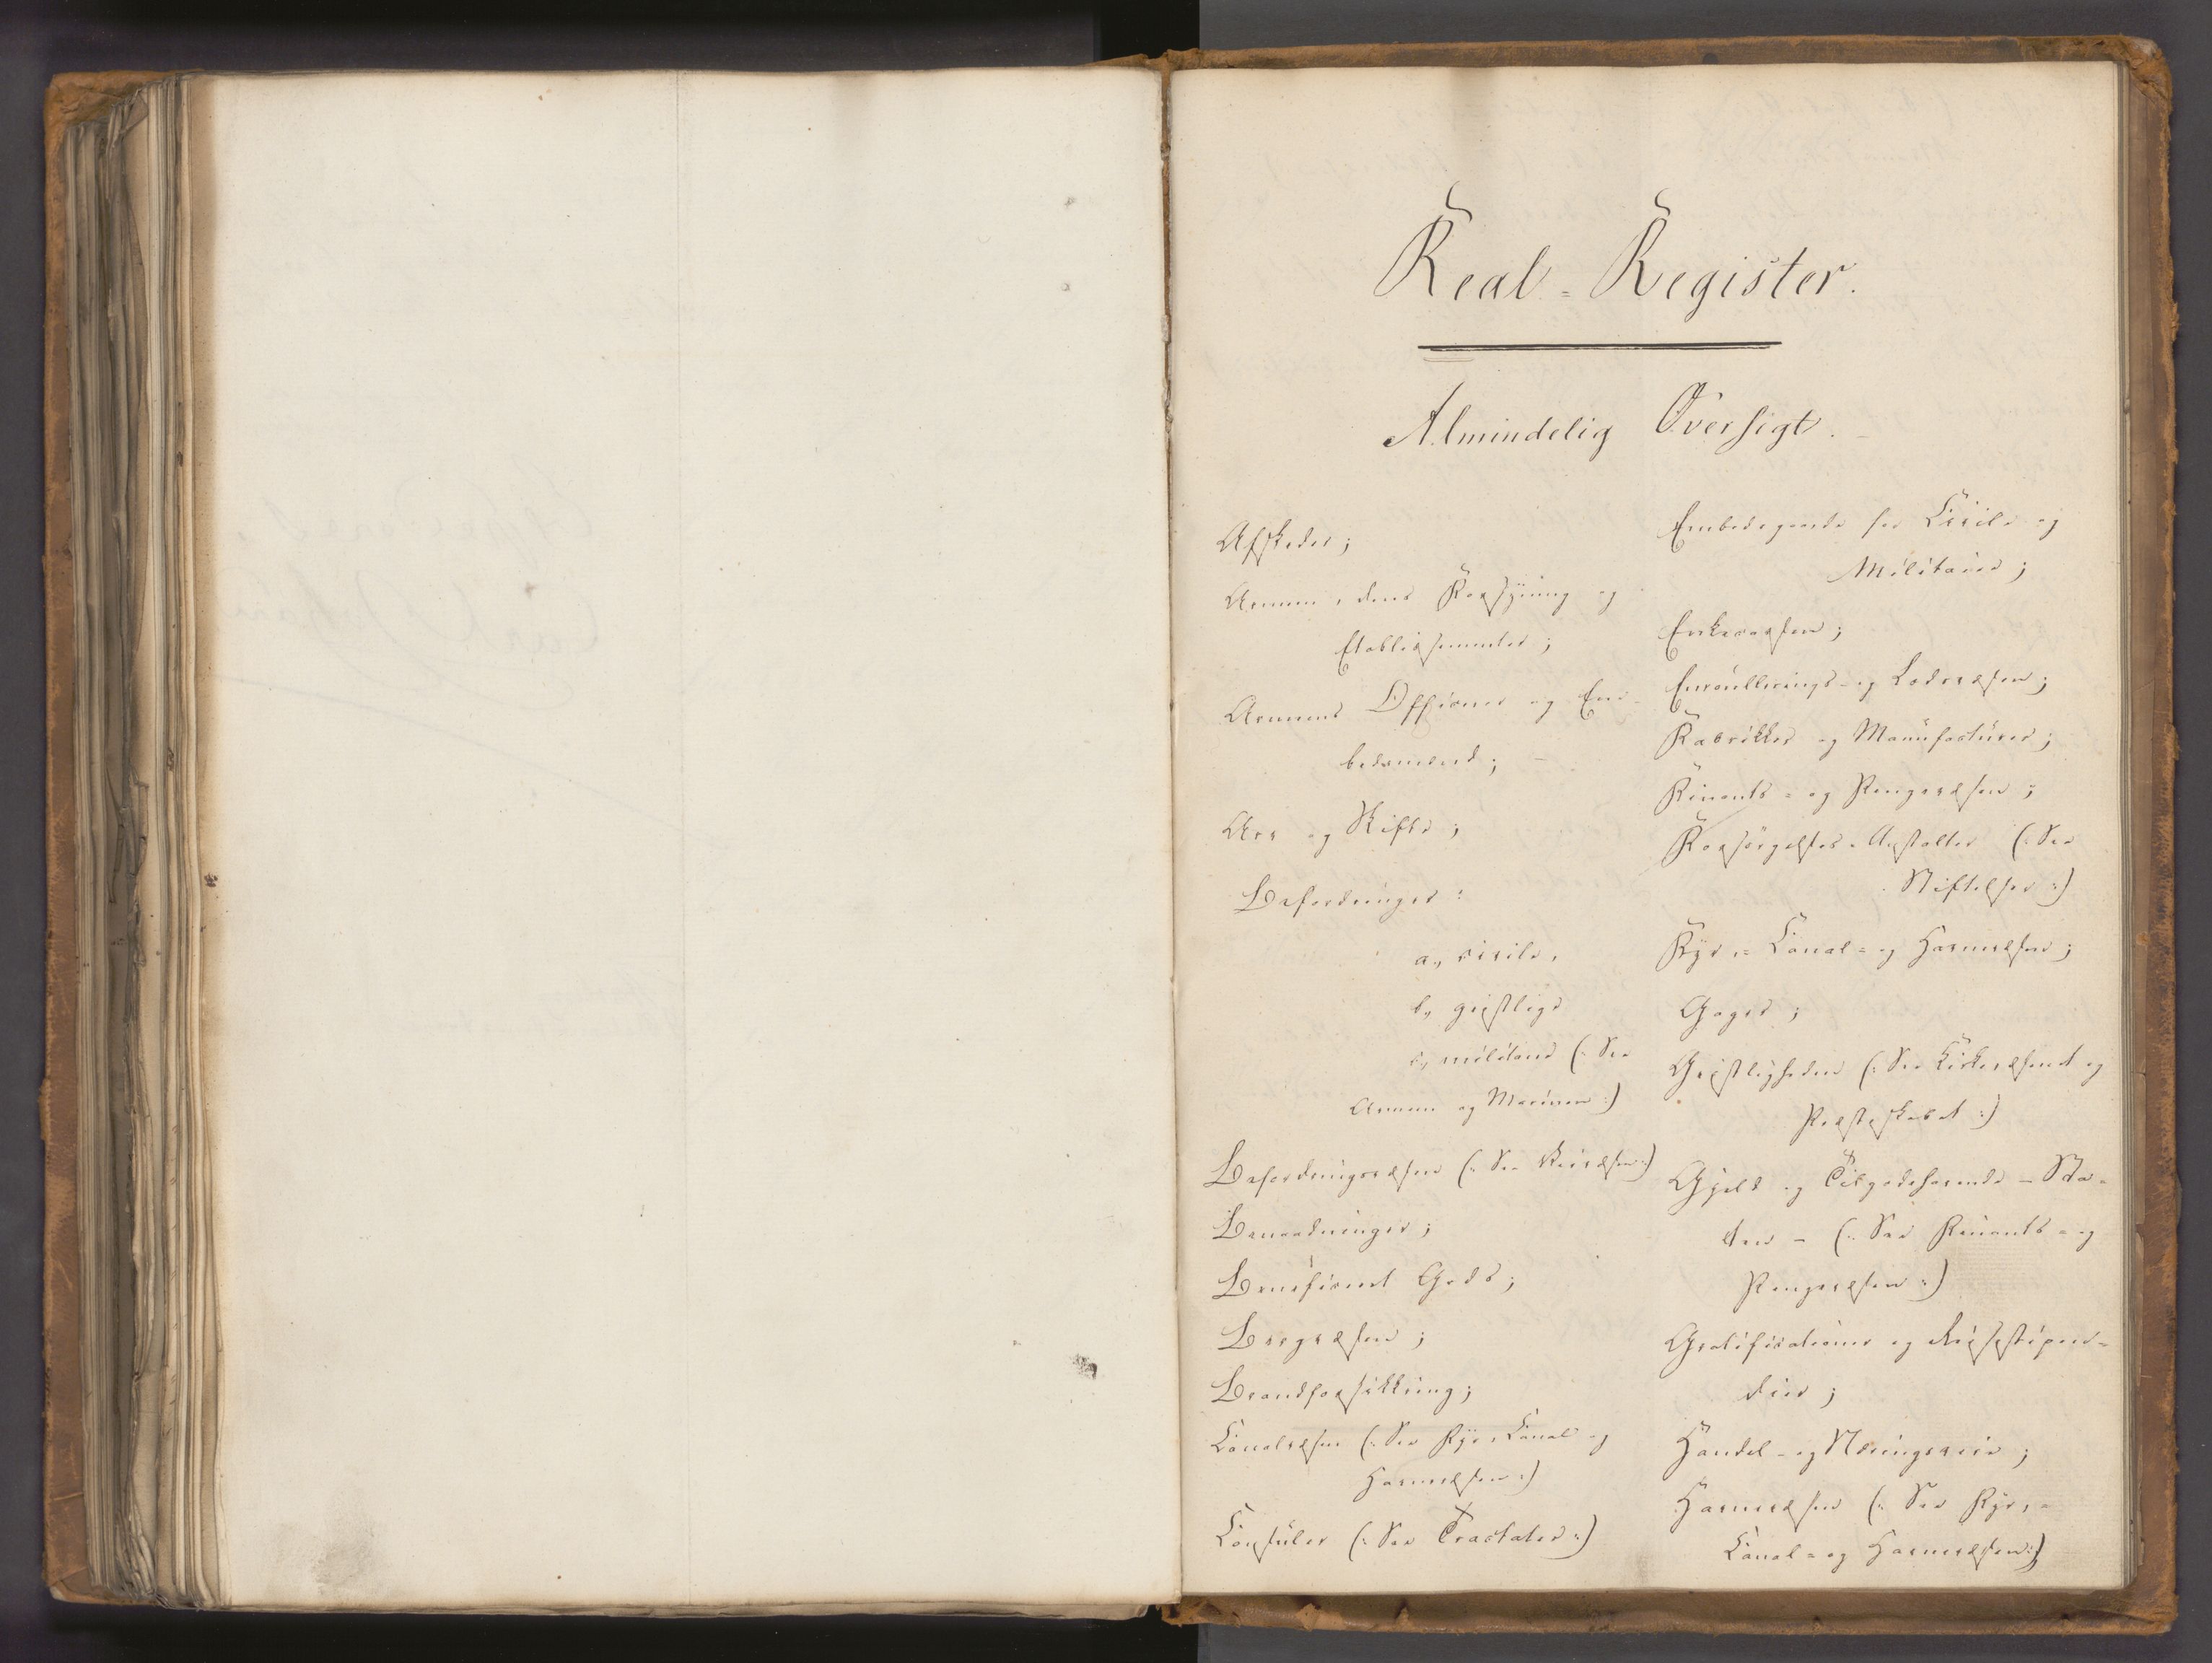 Real=Register.
Almindelig Oversigt.
Afskeder;
Armeen, dens Forsyning og
Etablissementer;
Armeens Officierer og Em-
bedsmænd;
Arv og Skifte;
Befordringer:
a, civile,
b, geistlige
c, militaire (: See
Armeen og Marinen :)
Befordringsvæsen (: See Veivæsen :)
Benaadninger;
Beneficeret Gods;
Bergvæsen;
Brandforsikkring;
Canalvæsen (: See Fyr, Canal og
Havnevæsen :)
Consuler (: See Tractater :)
Embedsgaarde for Civile og
Militaire;
Enkecassen;
Enroullerings- og Lodsvæsen;
Fabrikker og Manufacturer;
Finants= og Pengevæsen;
Forsörgelses-Anstalter (: See
Stiftelser :)
Fyr,= Canal= og Havnevæsen;
Gager;
Geistligheden (: See Kirkevæsenet og
Præsteskabet :)
Gjeld og Tilgodehavende - Sta-
tens - (: See Finants= og
Pengevæsen :)
Gratificationer og Reisestipen-
dier;
Handel- og Næringsveie;
Havnevæsen (: See Fyr,=
Canal= og Havnevæsen :)